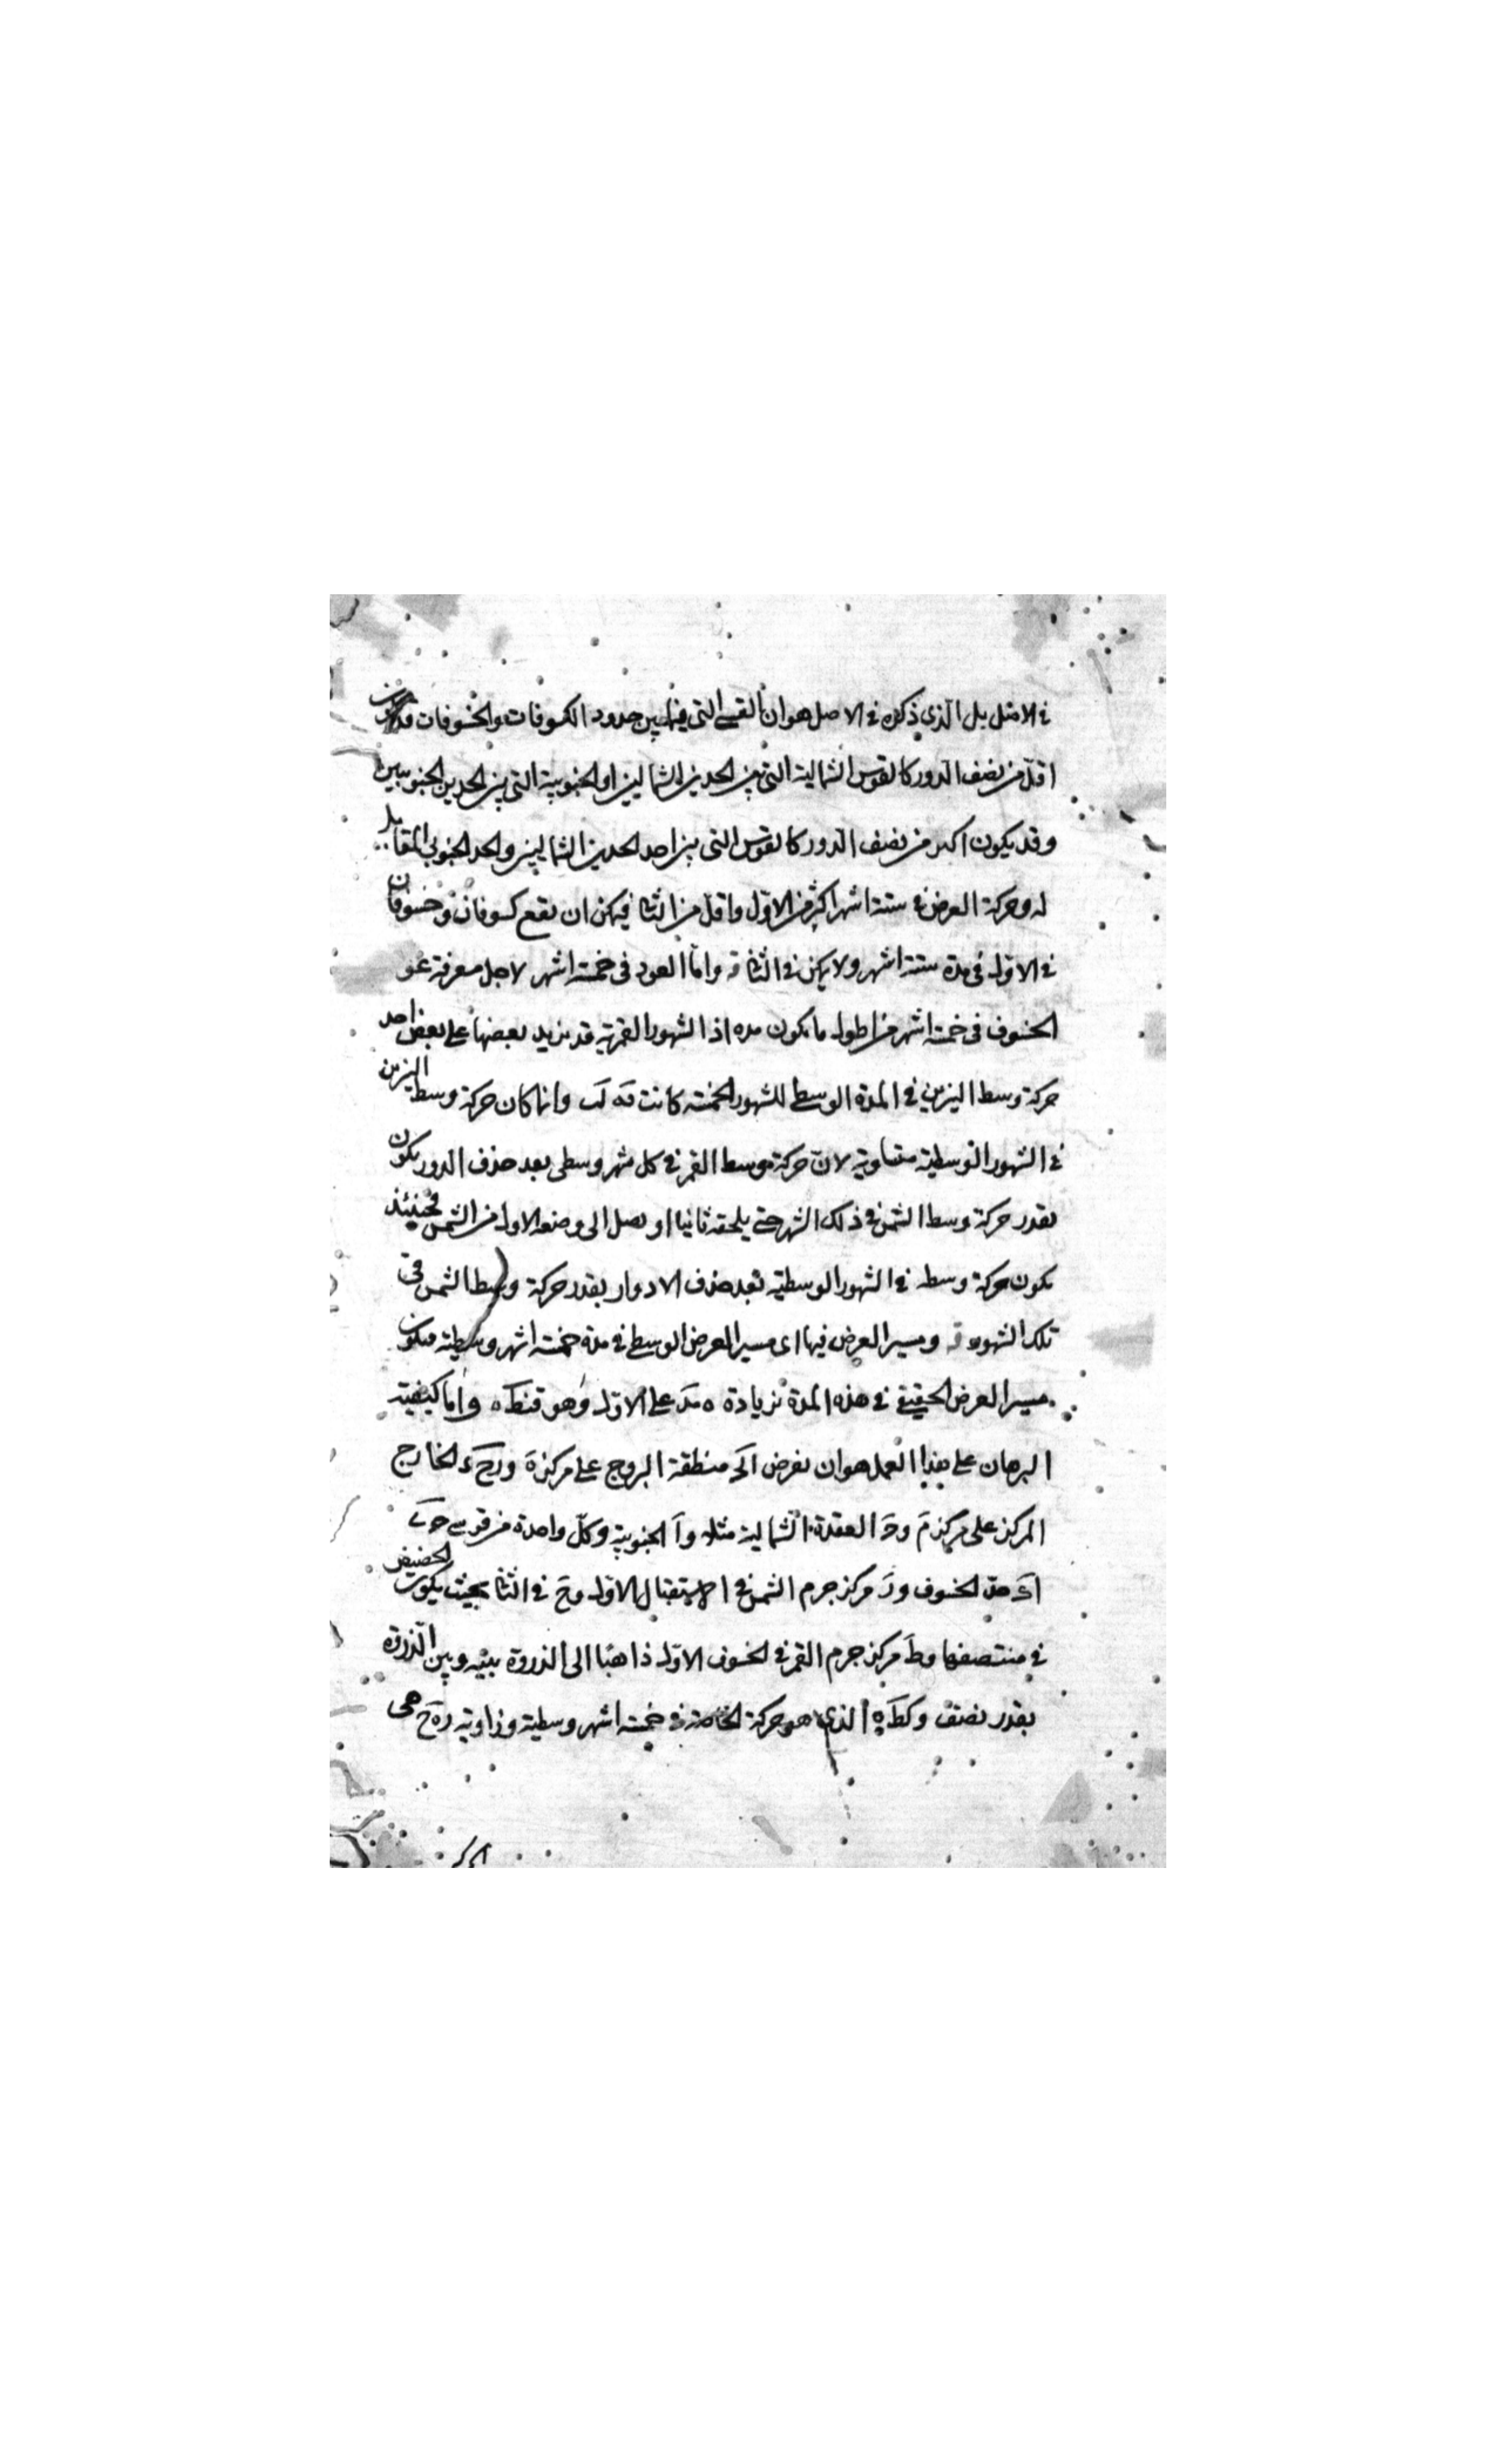 في الامثل بل الذي ذكره في الاصل هو ان القسي التي فيما بين حدود الكسوفات والخسوفات قد تكون
اقل من نصف الدور كالقوس الشمالية التي بين الحدين الشماليين او الجنوبية التي بين الحدين الجنوبيين
وقد يكون اكبر من نصف الدور كالقوس التي بين احد الحدين الشماليين والحد الجنوبي المقابل
له وحركة العرض في ستة اشهر اكثر من الاول واقل من الثاني فيمكن ان يقع كسوفان وخسوفان
في الاول في مدة ستة اشهر ولا يمكن في الثاني قه واما العود في خمسة اشهر لاجل معرفة عود
الخسوف في خمسة اشهر من اطول ما يكون مده اذ الشهور القمرية قد يزيد بعضها على بعض احد
حركة وسط النيرين في المدة الوسطى للشهور الخمسة كانت قمه لب وانما كان حركة وسط النيرين
في الشهور الوسطية متساوية لان حركة وسط القمر في كل شهر وسطى بعد حذف الدور يكون
بقدر حركة وسط الشمس في ذلك الشهر حتى يلحقه ثانيا او يصل الى وضعه الاول من الشمس فحينئذ
يكون حركة وسطه في الشهور الوسطية بعد حذف الادوار بقدر حركة وسط الشمس في
تلك الشهور قه ومسير العرض فيها اى مسير العرض الوسط في مدة خمسة اشهر وسطية فيكون
مسير العرض الحقيقي في هذه المدة بزيادة ه مد على الاول وهو قنط ه واما كيفية
البرهان على هذا العمل هو ان نفرض اح منطقة البروج على مركز ه و رح ء الخارج
المركز على مركز م و ح العقدة الشمالية مثلا و ا الجنوبية وكل واحدة من قوسي ح ب
اء حد الخسوف و ر مركز جرم الشمس في الاستقبال الاول و ح في الثاني بحيث يكون الحضيض
في منتصفها و ط مركز جرم القمر في الخسوف الاول ذاهبا الى الذروة بينه وبين الذروة
بقدر نصف وكط ه الذي هو حركة الخاصة في خمسة اشهر وسطية وزاوية ره ح هي